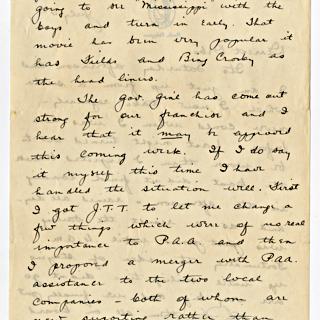 going to see "Mississippi" with the
boys and turn in early. That
movie has been very popular it
has Fields and Bing Crosby as
the head liners.
The Gov. Gral has come out
strong for our franchise and I
hear that it may be approved
this coming week. If I do say
it myself this time I have
handled the situation well. First
I got J.T.T. to let me change a
few things which were of no real
importance to P.A.A. and then
I proposed a merger with P.A.A.
assistance to the two local
companies – both of whom are
now suporting rather than